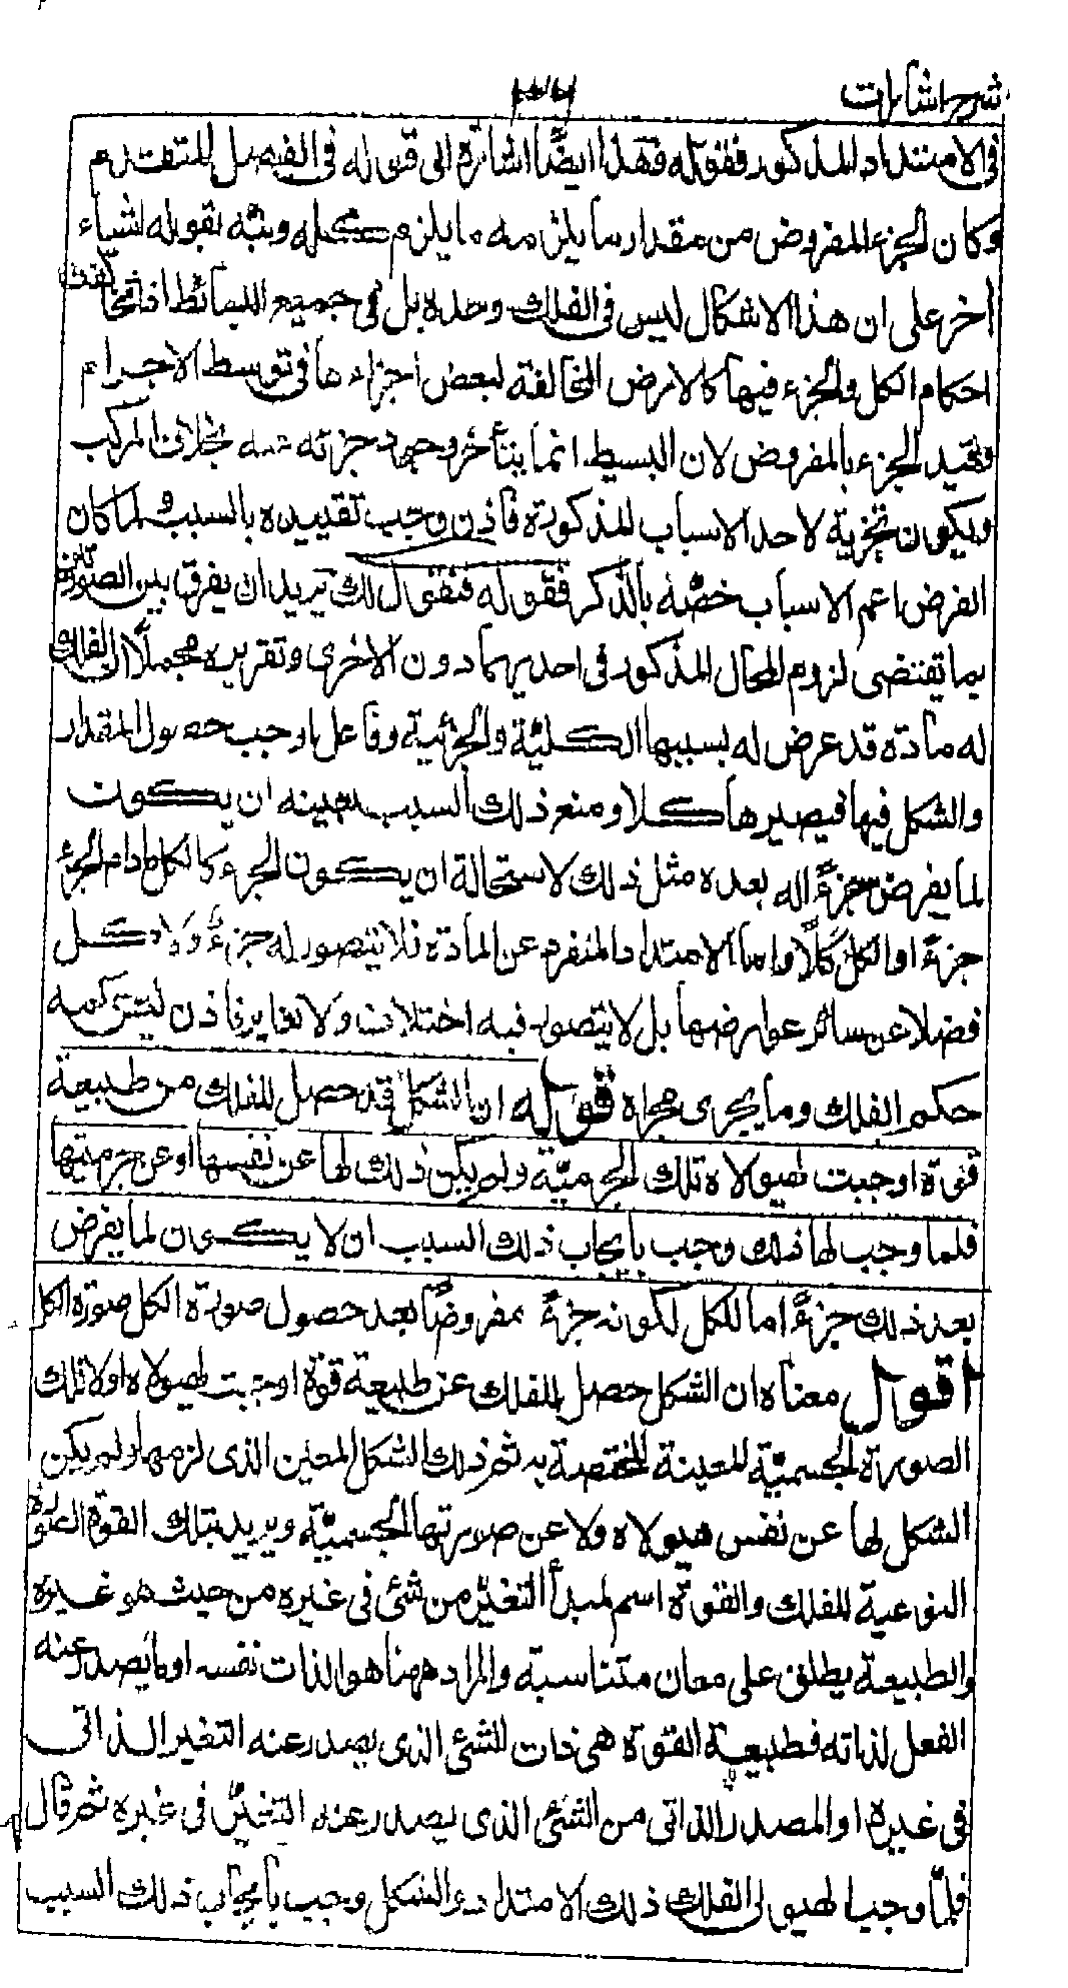 شرح اشارات
فى الامتداد المذكور فقوله فهذا ايضًا اشارة الى قوله فى الفصل المتقدم
وكان الجزء المفروض من مقدار ما يلزمه ما يلزم كله ونبّه بقوله لشياء
اخر على ان هذا الاشكال ليس فى الفلك وحده بل فى جميع البسائط اذا تخالفت
احكام الكل والجزء فيها كالارض المخالفة لبعض اجزاءها فى توسط الاجرام
وتقييد الجزء بالمفروض لان البسيط انما يتأخر وجود جزئه عنه بخلاف المركب
ويكون تجزية لاحد الاسباب المذكورة فاذن وجب تقييده بالسبب ولما كان
الفرض اعم الاسباب خصّه بالذكر فقوله فنقول لك يريد ان يفرق بين الصورتين
بما تقتضى لزوم المحال المذكور فى احديهما دون الاخرى وتقريره مجملًا ان الفلك
له مادّة قد عرض له بسببها الكليّة والجزئية وفاعل اوجب حصول المقدار
والشكل فيها فيصيرها كلا ومنع ذلك السبب بعينه ان يكون
لما يفرض جزءً اله بعده مثل ذلك لاستحالة ان يكون الجزء كالكل مادام الجزء
جزءً او الكل كلًا واما الامتداد المنفرد عن المادّة فلا يتصور له جزءً ولا كل
فضلا عن سائر عوارضها بل لا يتصور فيه اختلاف ولا تغاير فاذن ليس حكمه
حكم الفلك وما يجرى مجراه قوله ان الشكل قد حصل للفلك من طبيعة
قوة اوجبت لهيولاه تلك الجرميّة ولم يكن ذلك لها عن نفسها او عن جرميتها
فلما وجب لها ذلك وجب بايجاب ذلك السبب ان لا يكون لما يفرض
بعد ذلك جزءً اما للكل لكونه جزءً مفروضًا بعد حصول صورة الكل صورة الكل
اقول معناه ان الشكل حصل للفلك عن طبيعة قوة اوجبت لهيولاه اولا تلك
الصورة الجسميّة المعينة المختصة به ثم ذلك الشكل المعين الذى لزمها ولم يكن
الشكل لها عن نفس هيولاه ولا عن صورتها الجسميّة ويريد بتلك القوة الصورة
النوعية للفلك والقوة اسم لمبدأ التغيّر من شئ فى غيره من حيث هو غيره
والطبيعة يطلق على معان متناسبة والمراد ههنا هو الذات نفسه او ما يصدر عنه
الفعل لذاته فطبيعة القوة هى ذات الشئ الذى يصدر عنه التغير الذاتى
فى غيره او المصدر الذاتى من الشئ الذى يصدر عنه التغيّر فى غيره ثم قال
فلمّا وجب لهيولى الفلك ذلك الامتداد والشكل وجب بايجاب ذلك السبب